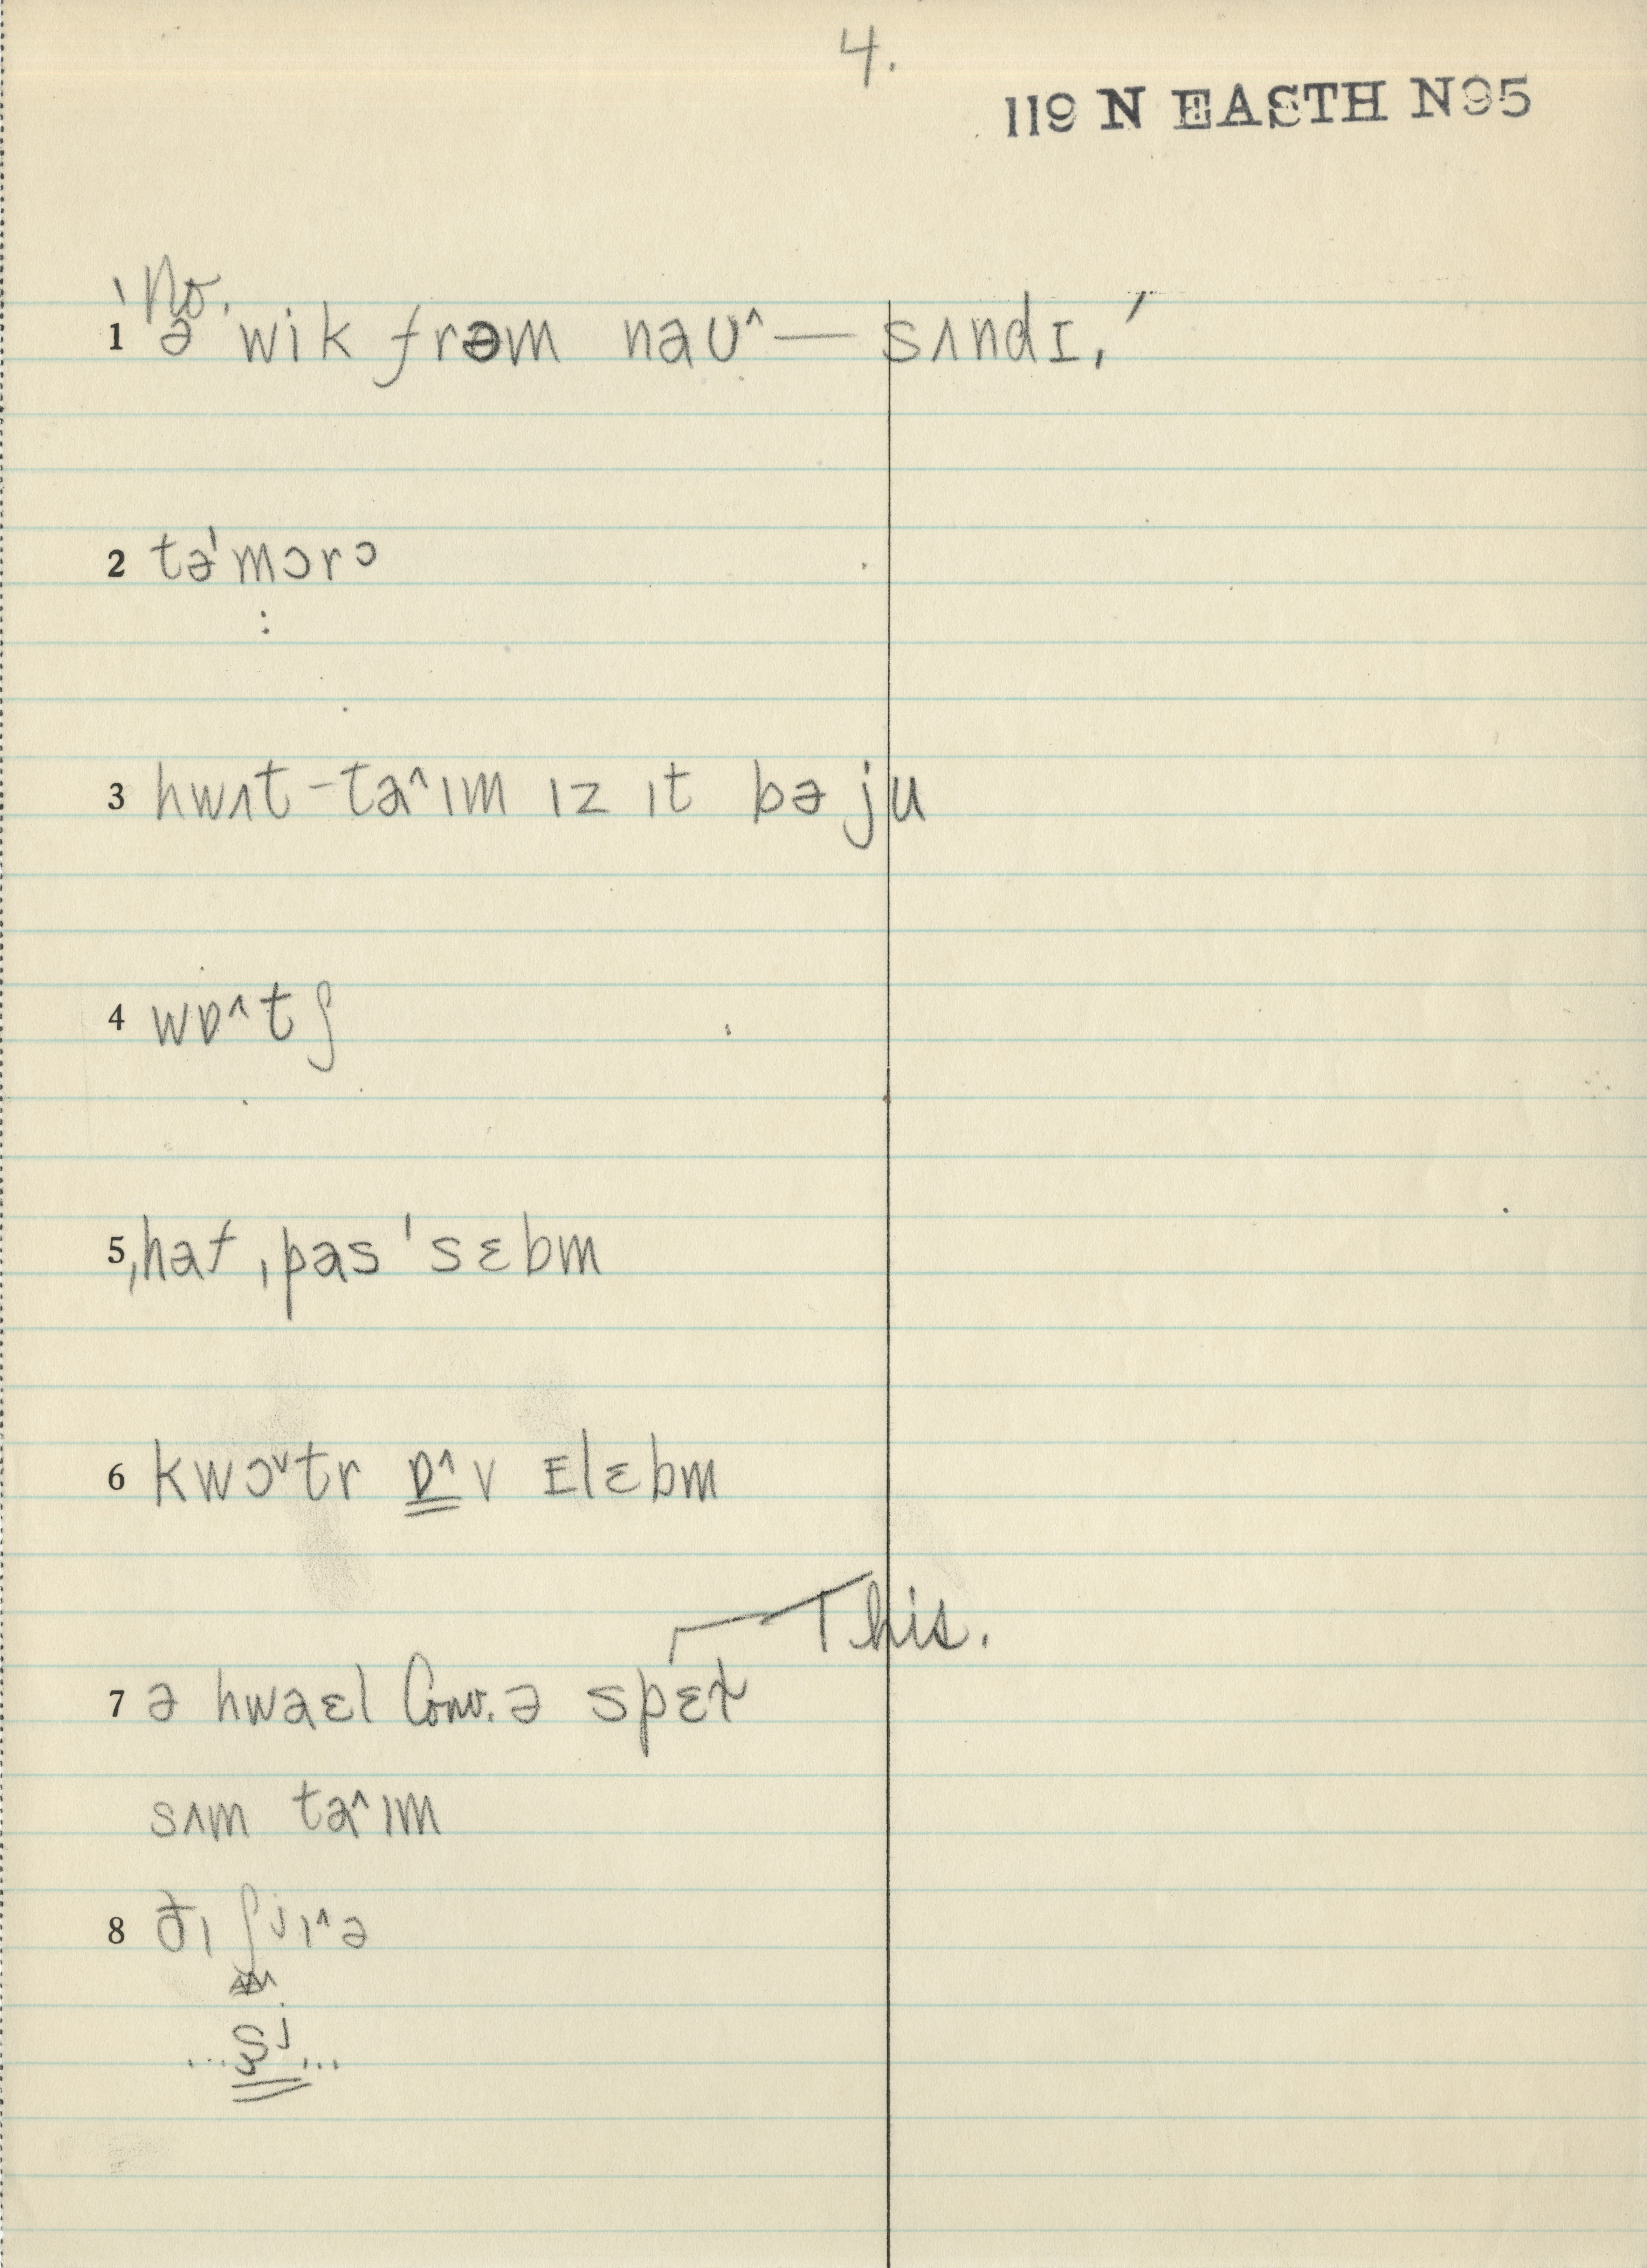 4.
119 N EASTH N95
No.
1 ˈə wik frəm naʊ^ — sʌndɪ,ˊ
2 təˈmɔrɔ
:
3 hwʌt-ta^ɪm ɪz ɪt bəju
4 wɒ^tʃ
5 ˌhaf ˌpas ˈsɛbm
6 kwɔ˅tr ɒ^v ᴇlɛbm
This.
7 ə hwaɛl Conv. ə spɛt
sʌm ta^ɪm
8 ðɪ ʃjɪ^ə
...sj...